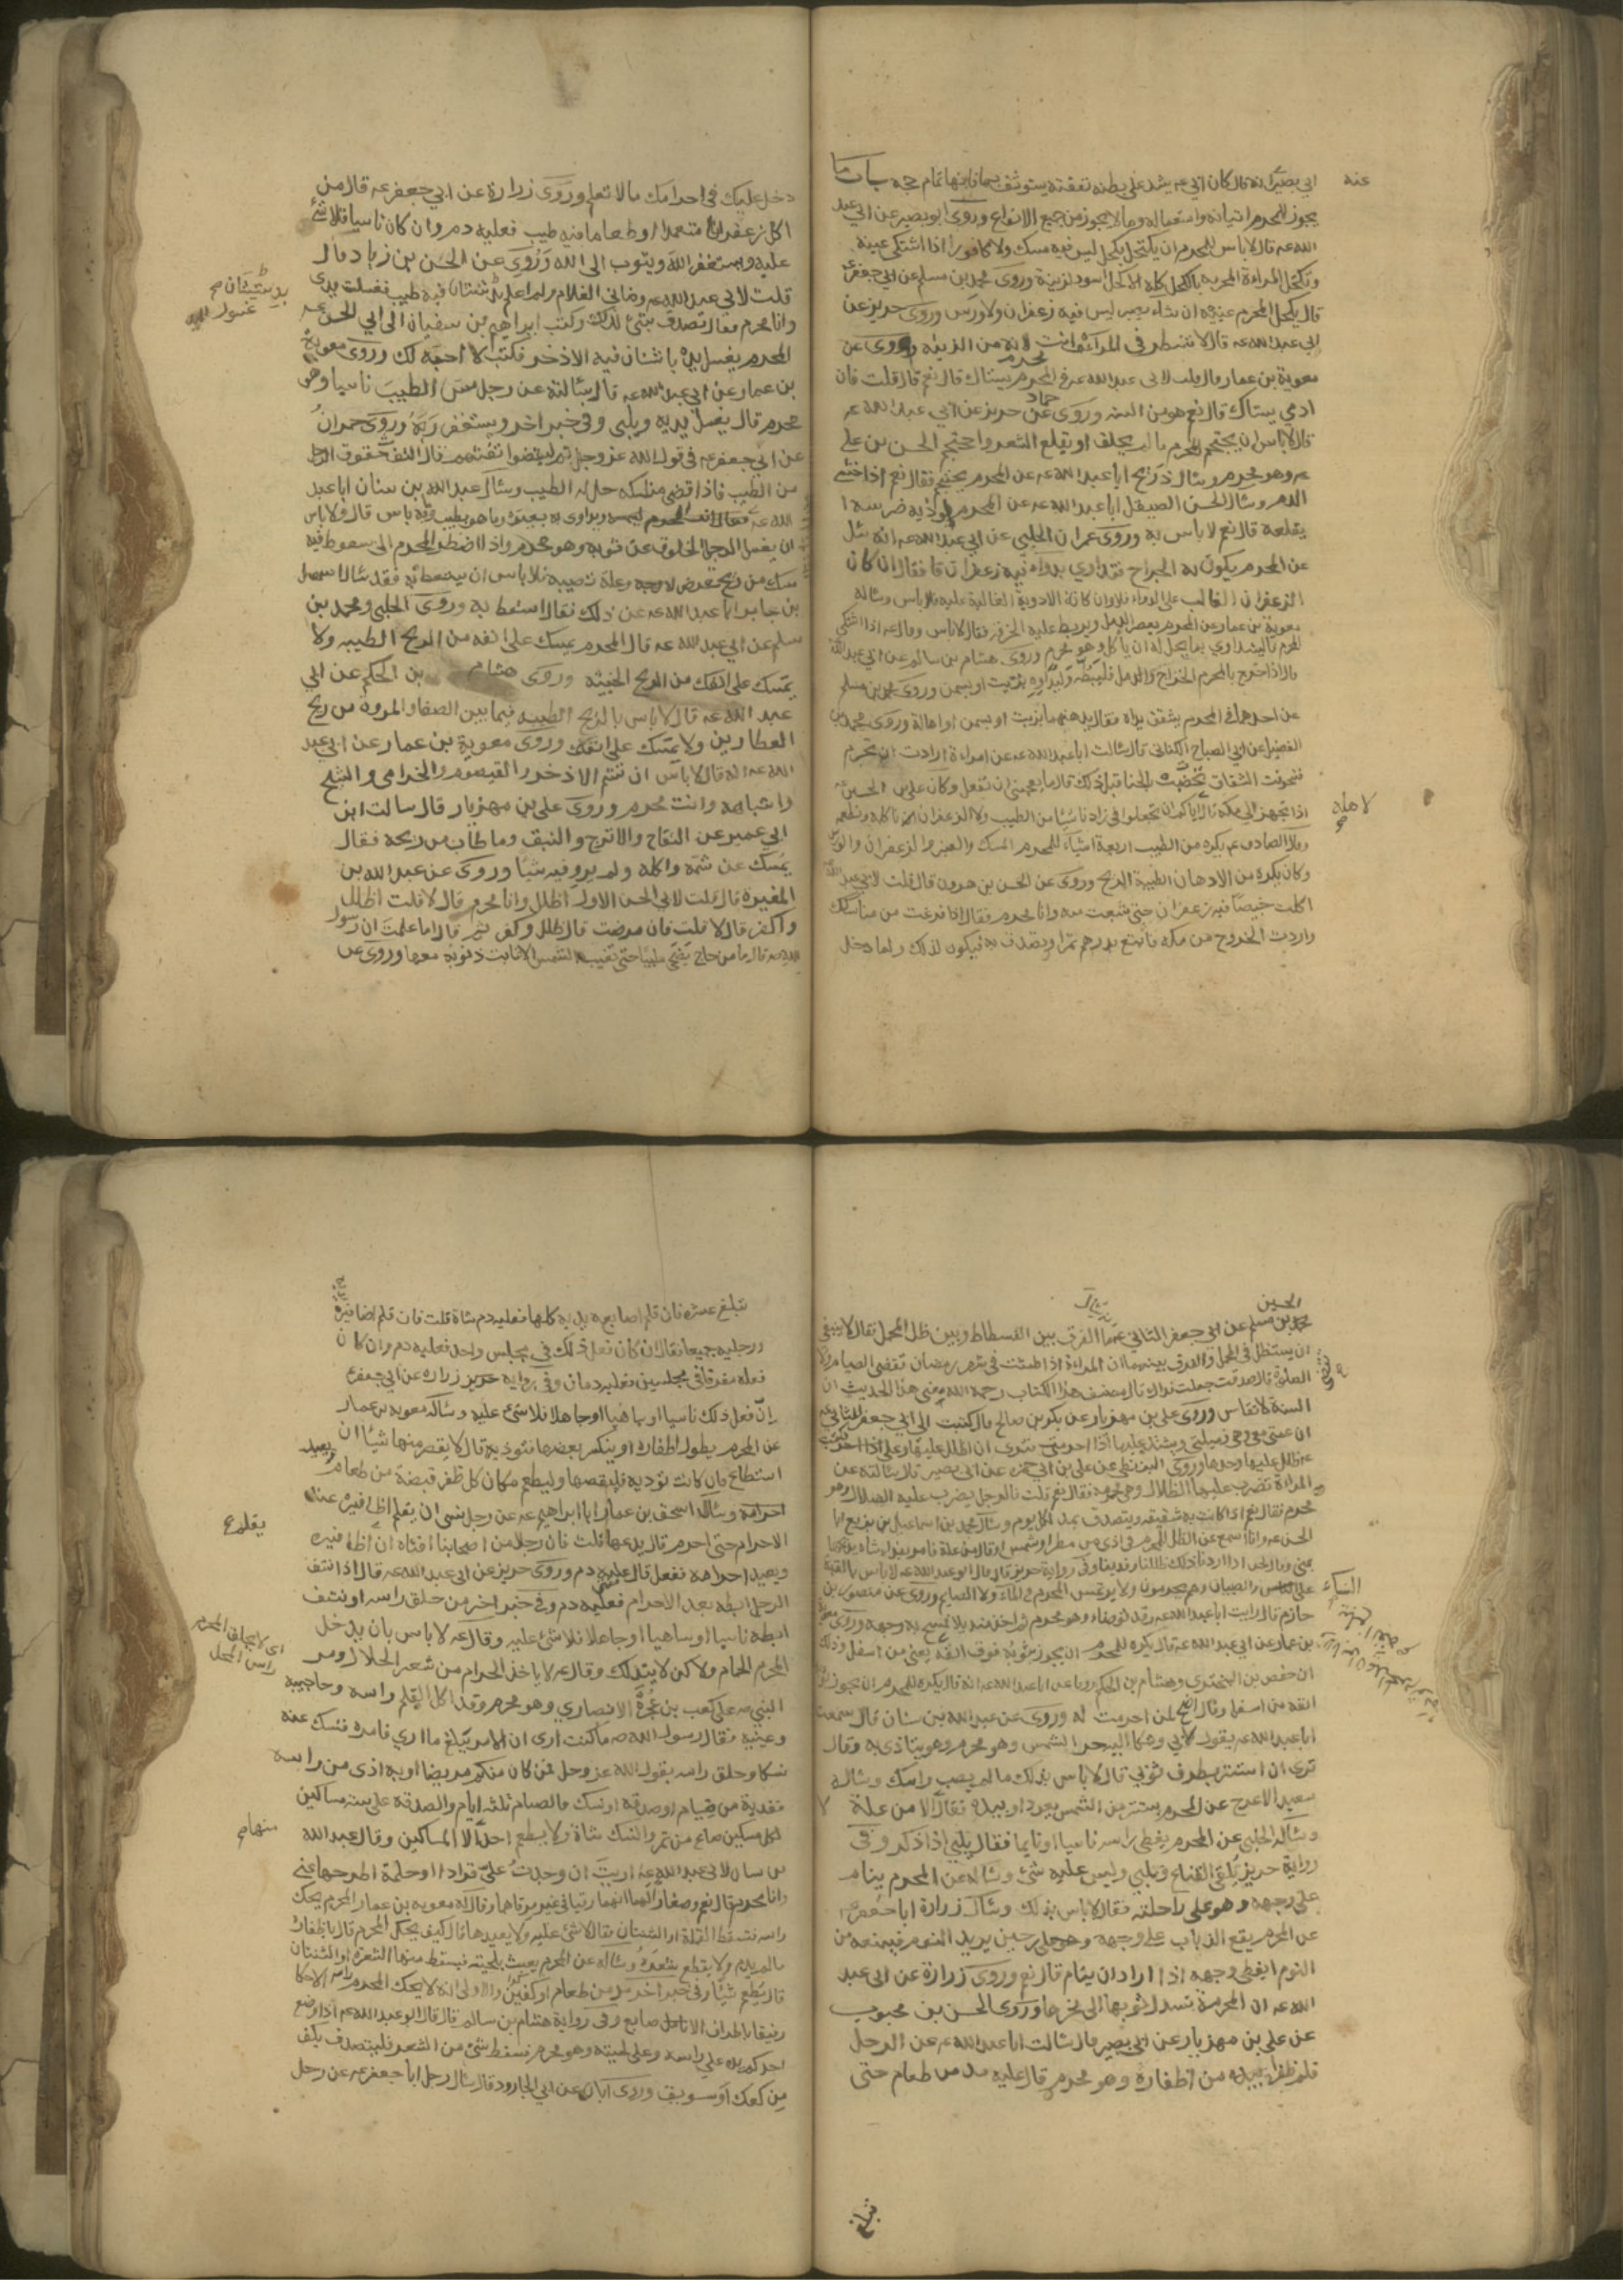 ابي بصير انه قال كان ابي عه يشد على بطنه نفقته يستوثق بها فانها تمام حجه باب ما
عنه
يجوز للمحرم اتيانه واستعماله وما لا يجوز من جميع الانواع وروى ابو بصير عن ابي عبد
الله عه قال لا باس للمحرم ان يكتحل بكحل ليس فيه مسك ولا كافور اذا اشتكى عينه
وتكتحل المراءة المحرمة بالكحل كله الا كحل اسود لزينة وروى محمد بن مسلم عن ابي جعفر ع
قال يكتحل المحرم عينيه ان شاء بصبر ليس فيه زعفران ولا ورس وروى حريز عن
ابي عبد الله عه قال لا تنظر في المراءة وانت محرم لانه من الزينة وروى عن
معوية بن عمار قال قلت لابي عبد الله عه في المحرم يستاك قال نعم قال قلت فان
ادمي يستاك قال نعم هو من السنه وروى حماد عن حريز عن ابي عبد الله عه
قال لا باس ان يحتجم المحرم ما لم يحلق او يقلع الشعر واحتجم الحسن بن علي
عه وهو محرم وسال ذريح ابا عبد الله عه عن المحرم يحتجم فقال نعم اذا خشي
الدم وسال الحسن الصيقل ابا عبد الله عه عن المحرم يؤذيه ضرسه ا
يقلعه قال نعم لا باس به وروى عمران الحلبي عن ابي عبد الله عه انه سئل
عن المحرم يكون به الجراح فتداوي بدواء فيه زعفران قا فقال ان كان
الزعفران الغالب على الدواء فلا وان كانت الادوية الغالبة عليه فلا باس وساله
معوية بن عمار عن المحرم يعصر الدمل ويربط عليه الخرقه فقال لا باس وقال عه اذا اشتكى
المحرم فليتداوى بما يحل له ان ياكل وهو محرم وروى هشام بن سالم عن ابي عبد الله
قال اذا خرج بالمحرم الخراج والدمل فليبطه وليداوه بزيت او بسمن وروى محمد بن مسلم
عن احدهما في المحرم يشقق يداه فقال يدهنهما بزيت او بسمن او اهالة وروى محمد بن
الفضيل عن ابي الصباح الكناني قال سالت ابا عبد الله عه عن امراءة ارادت ان تحرم
فتخوفت الشقاق تخضبت بالحنا قبل ذلك قال ما يعجبني ان تفعل وكان علي بن الحسين ع
اذا تجهز الى مكه قال لاهله اياكم ان تجعلوا في زادنا شيئا من الطيب ولا الزعفران ناكله ونطعمه
لاهله
وقال الصادق عه يكره من الطيب اربعة اشياء للمحرم المسك والعنبر والزعفران والورس
وكان يكره من الادهان الطيبة الريح وروى عن الحسن بن هرون قال قلت لابي عبد الله
اكلت خبيصا فيه زعفران حتى شبعت منه وانا محرم فقال اذا فرغت من مناسكك
واردت الخروج من مكه فابتع بدرهم تمرا وتصدق به فيكون لذلك ولما دخل
دخل عليك في احرامك ما لا تعلم وروى زرارة عن ابي جعفر عه قال من
اكل زعفرانا متعمدا او طعاما فيه طيب فعليه دم وان كان ناسيا فلا شئ
عليه ويستغفر الله ويتوب الى الله وروى عن الحسن بن زياد قال
قلت لابي عبد الله عه وضاني الغلام ولم اعلم باشنان فيه طيب فغسلت يدي
وانا محرم فقال تصدق بشئ لذلك وكتب ابراهيم بن سفيان الى ابي الحسن عه
المحرم يغسل يده باشنان فيه الاذخر فكتب لا احبه لك وروى معوية
بن عمار عن ابي عبد الله عه قال سالته عن رجل مس الطيب ناسيا وهو
محرم قال يغسل يديه ويلبي وفي خبر اخر ويستغفر ربه وروى حمران
عن ابي جعفر عه في قول الله عز وجل ثم ليقضوا تفثهم قال التفث حقوق الرجل
من الطيب فاذا قضى مناسكه حل له الطيب وسال عبد الله بن سنان ابا عبد
ان يغسل الرجل الخلوق عن ثوبه وهو محرم واذا اضطر المحرم الى سعوط فيه
مسك من ريح تعرض له وعلة تصيبه فلا باس ان يستعط به فقد سال اسمعيل
بن جابر ابا عبد الله عه عن ذلك فقال استعط به وروى الحلبي ومحمد بن
مسلم عن ابي عبد الله عه قال المحرم يمسك على انفه من الريح الطيبه ولا
يمسك على انفك من الريح الخبيثه وروى هشام بن الحكم عن ابي
عبد الله عه قال لا باس بالريح الطيبه فيما بين الصفا والمروة من ريح
العطارين ولا يمسك على انفك وروى معوية بن عمار عن ابي عبد
الله عه انه قال لا باس ان تشم الاذخر والقيصوم والخزامى والشيح
واشباهه وانت محرم وروى علي بن مهزيار قال سالت ابن
ابي عمير عن التفاح والاترج والنبق وما طاب من ريحه فقال
يمسك عن شمه واكله ولم يرو فيه شيئا وروى عن عبد الله بن
المغيرة قال قلت لابي الحسن الاول اظلل وانا محرم قال لا قلت اظلل
واكفر قال لا قلت فان مرضت قال ظلل وكفر ثم قال اما علمت ان رسول
الله صه قال ما من حاج يضحي ملبيا حتى تغيب الشمس الا غابت ذنوبه معها وروى عن
الحسين
بن مسلم عن ابي جعفر الثاني عه ما الفرق بين الفسطاط وبين ظل المحمل فقال لا ينبغي
ان يستظل في المحمل والفرق بينهما ان المراءة اذا طمثت في شهر رمضان تقضي الصيام ولا
الصلوة قال صدقت جعلت فداك قال مصنف هذا الكتاب رحمه الله معنى هذا الحديث ان
السنة لا تقاس وروى علي بن مهزيار عن بكر بن صالح قال كتبت الى ابي جعفر الثاني عه
ان عمتي معي وهي زميلتي ويشتد عليها اذا احرمت فترى ان اظلل عليها وعلي فكتب
ظلل عليها وحدها وروى البزنطي عن علي بن ابي حمزه عن ابي بصير قال سالته عن
المراءة تضرب عليها الظلال وهي محرمه فقال نعم قلت فالرجل يضرب عليه الظلال وهو
محرم فقال نعم اذا كانت به شقيقه ويتصدق بمد لكل يوم وسال محمد بن اسماعيل بن بزيع ابا
الحسن عه وانا اسمع عن الظل للمحرم في اذى من مطر او شمس او قال من علة فامر بفداء شاة يذبحها
النساء
حازم قال رايت ابا عبد الله عه وقد توضا وهو محرم ثم اخذ منديلا فمسح به وجهه وروى معوية
بن عمار عن ابي عبد الله عه قال يكره للمحرم ان يجوز ثوبه فوق انفه يعني من اسفل وذلك
ان حفص بن البختري وهشام بن الحكم رويا عن ابا عبد الله عه انه قال يكره للمحرم ان يجوز ثوبه
انفه من اسفل وقال اضح لمن احرمت له وروى عن عبد الله بن سنان قال سمعت
ابا عبد الله عه يقول لابي وشكا اليه حر الشمس وهو محرم وهو يتاذى به وقال
ترى ان استتر بطرف ثوبي قال لا باس بذلك ما لم يصب راسك وساله
سعيد الاعرج عن المحرم يستتر من الشمس بعود او بيده فقال لا الا من علة
وساله الحلبي عن المحرم يغطي راسه ناسيا او نايما فقال يلبي اذا ذكر وفي
رواية حريز يلقي القناع ويلبي وليس عليه شئ وساله عن المحرم ينام
على وجهه وهو على راحلته فقال لا باس بذلك وسال زرارة ابا جعفر ع
عن المحرم يقع الذباب على وجهه حين يريد النوم فيمنعه من
النوم ايغطي وجهه اذا اراد ان ينام قال نعم وروى زرارة عن ابي عبد
الله عه ان المحرمة تسدل ثوبها الى نحرها وروى الحسن بن محبوب
عن علي بن مهزيار عن ابي بصير قال سالت ابا عبد الله عه عن الرجل
قلم ظفرا بيده من اظفاره وهو محرم قال عليه مد من طعام حتى
تبلغ
تبلغ عشره فان قلم اصابع يديه كلها فعليه دم شاة قلت فان قلم اظافيره
ورجليه جميعا فقال ان كان فعل ذلك في مجلس واحد فعليه دم وان كان
فعله متفرقا في مجلسين فعليه دمان وفي رواية حريز زراره عن ابي جعفر ع
ان فعل ذلك ناسيا او ساهيا او جاهلا فلا شئ عليه وساله معويه بن عمار
عن المحرم يطول اظفاره او ينكسر بعضها فتؤذيه قال لا يقص منها شيئا ان
استطاع فان كانت تؤذيه فليقصها وليطعم مكان كل ظفر قبضة من طعام
احرامه وساله اسحق بن عمار ابا ابراهيم عه عن رجل نسى ان يقلم اظافيره عند
الاحرام حتى احرم قال يدعها قلت فان رجلا من اصحابنا افتاه ان اظافيره
يقلم ع
ويعيد احرامه ففعل قال عليه دم وروى حريز عن ابي عبد الله عه قال اذا نتف
الرجل ابطه بعد الاحرام فعليه دم وفي خبر اخر من حلق راسه او نتف
ابطه ناسيا او ساهيا او جاهلا فلا شئ عليه وقال عه لا باس بان يدخل
المحرم الحمام ولكن لا يتدلك وقال عه لا ياخذ الحرام من شعر الحلال ومر
النبي صه على كعب بن عجرة الانصاري وهو محرم وقد اكل القمل راسه وحاجبيه
وعينيه فقال رسول الله صه ما كنت ارى ان الامر يبلغ ما ارى فامره فنسك عنه
نسكا وحلق راسه يقول الله عز وجل فمن كان منكم مريضا او به اذى من راسه
ففدية من صيام او صدقه او نسك فالصيام ثلثه ايام والصدقه على سته مساكين
لكل مسكين صاع من تمر والنسك شاة ولا يطعم احد الا المساكين وقال عبد الله
بن سنان لابي عبد الله عه ارايت ان وجدت علي قرادا او حلمة اطرحهما عني
وانا محرم قال نعم وصغار لهما انهما رقيا في غير مرقاهما وقال له معويه بن عمار المحرم يحك
راسه فتسقط القملة او الثنتان فقال لا شئ عليه ولا يعيدها قال كيف يحك المحرم قال باظفاره
ما لم يدم ولا يقطع شعره وساله عن المحرم يعبث بلحيته فيسقط منها الشعرة او الثنتان
قال يطعم شيئا وفي خبر اخر مد من طعام او كفين والاولى انه لا يحك المحرم راسه الا حكا
رفيقا باطراف الاصابع وفي رواية هشام بن سالم قال قال ابو عبد الله عه اذا وضع
احدكم يده على راسه وعلى لحيته وهو محرم فسقط شئ من الشعر فليتصدق بكف
من كعك او سويق وروى ابان عن ابي الجارود قال سال رجل ابا جعفر عه عن رجل